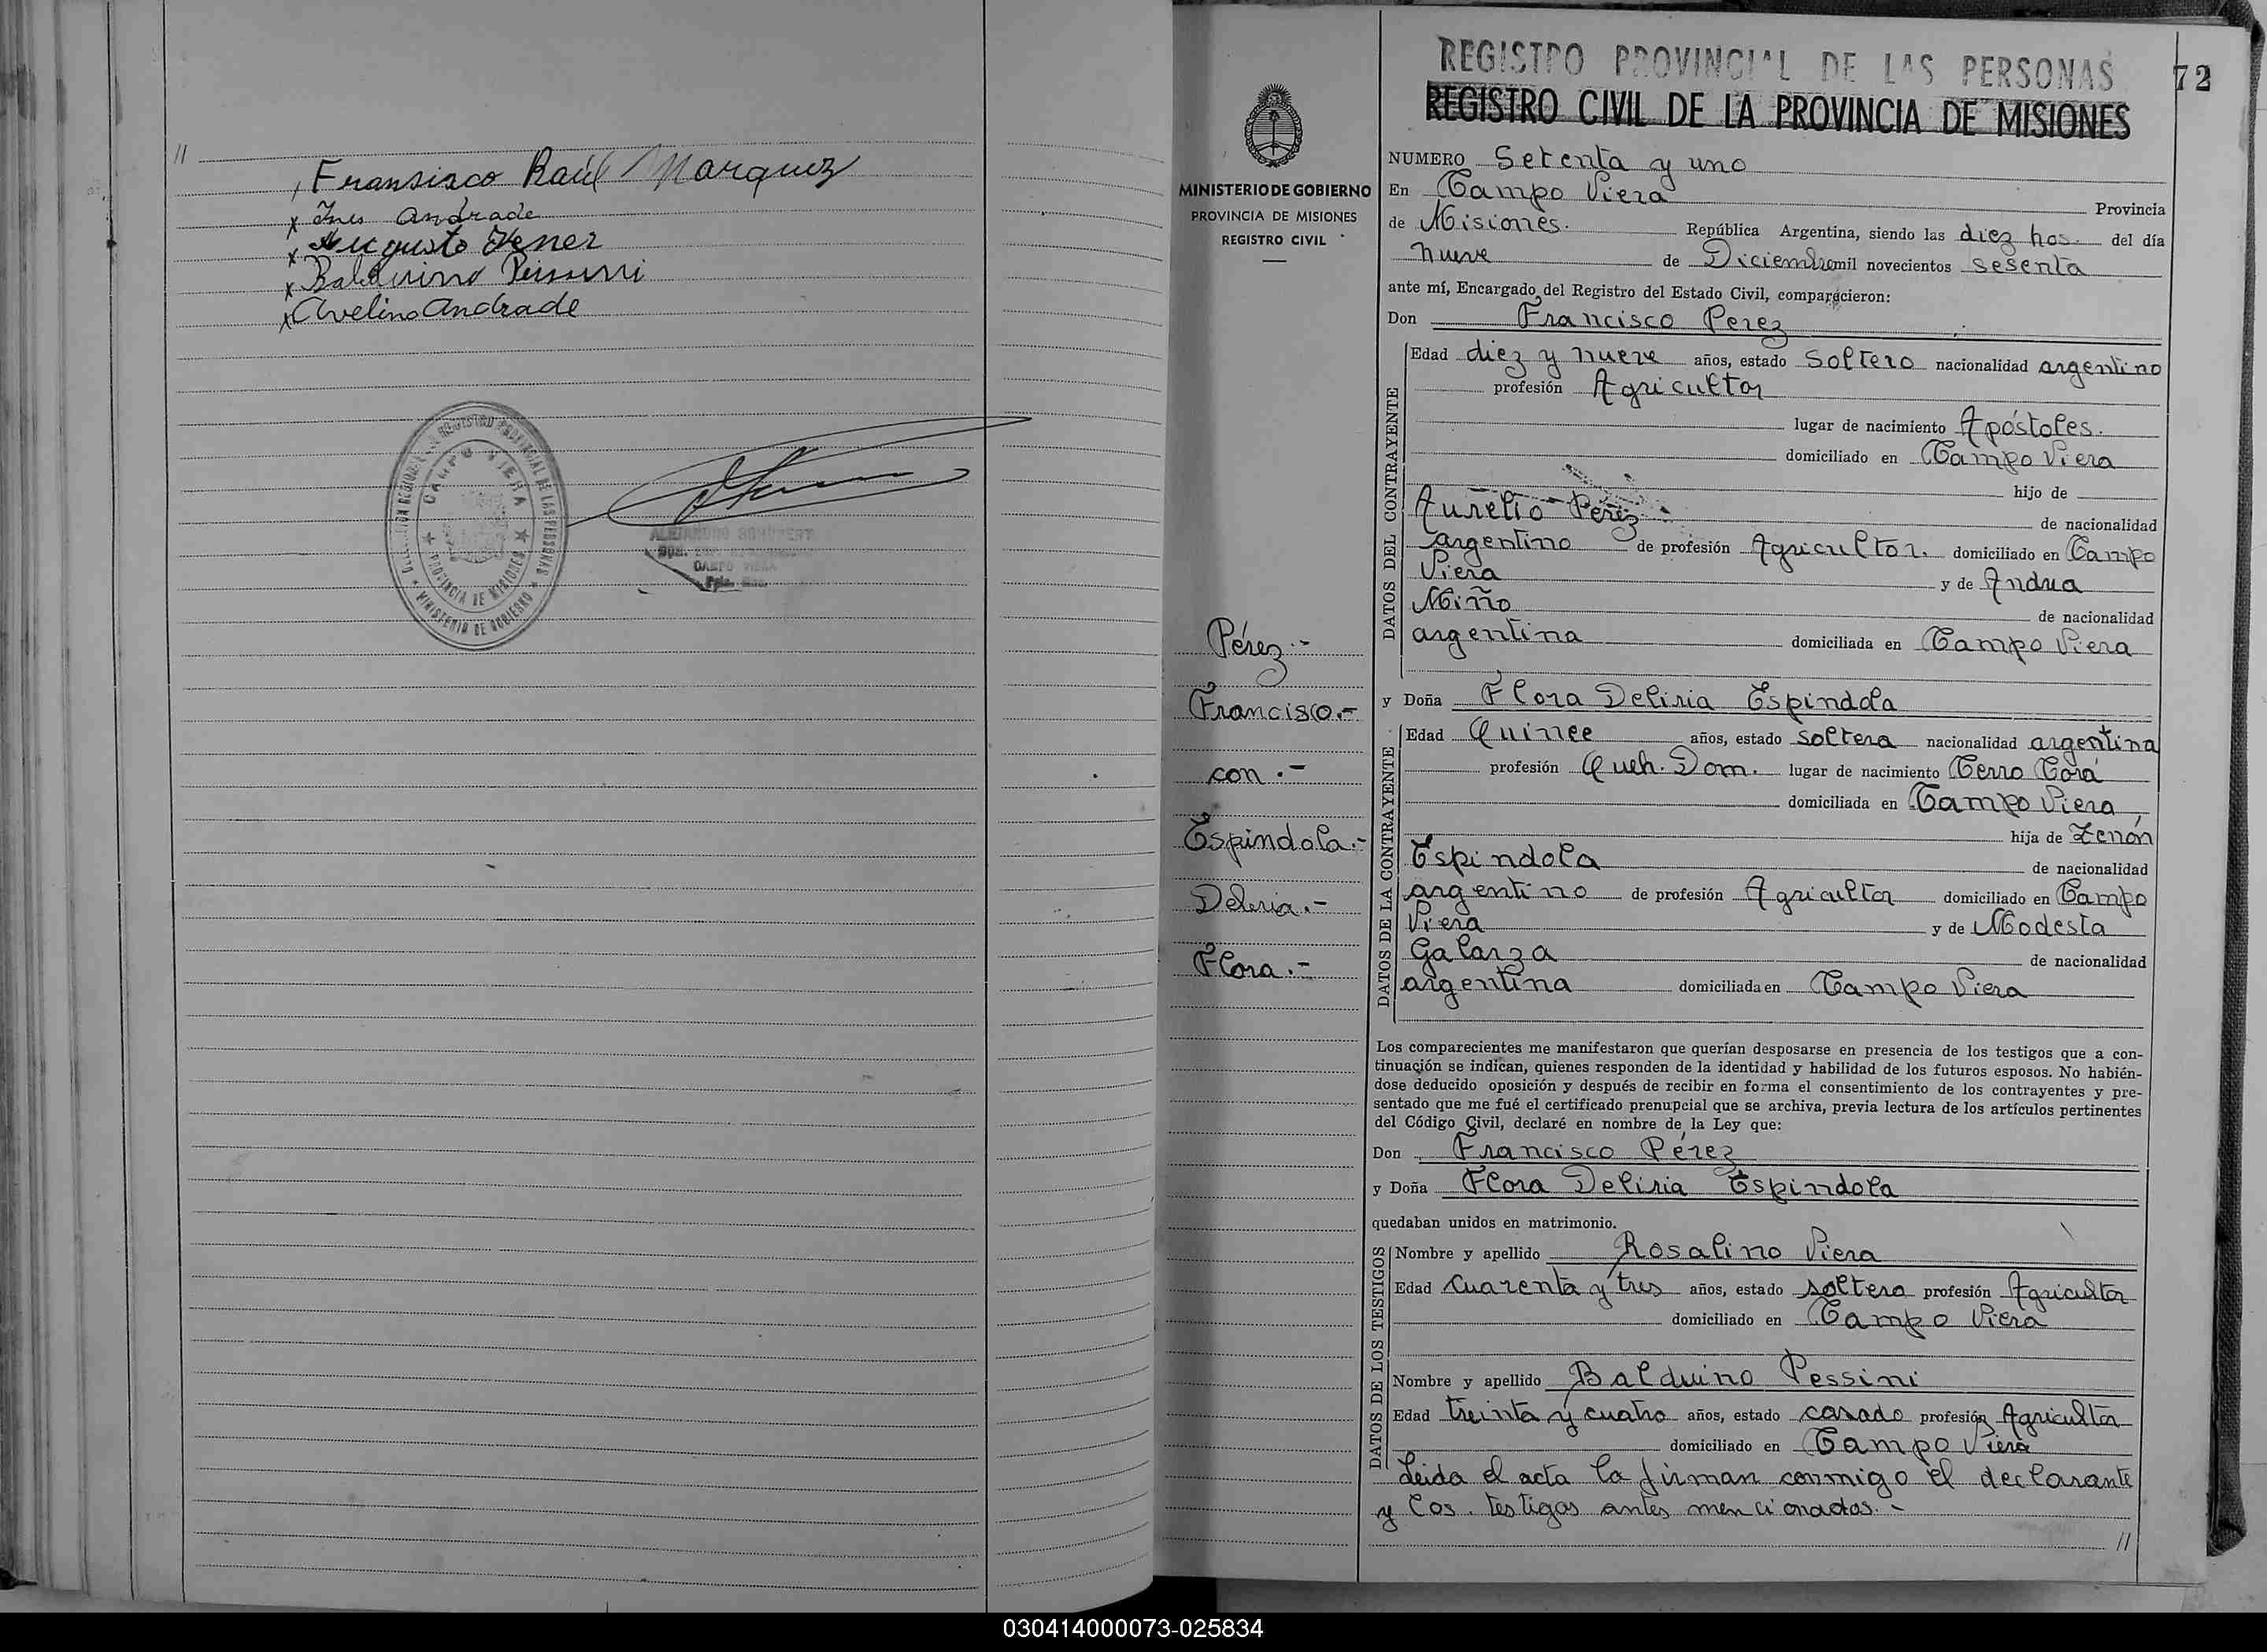 //
Fransisco Raúl Marquez
x Ines Andrade
x Augusto Kener
x Balduino Pessini
x Avelino Andrade
REGISTRO PROVINCIAL DE LAS PERSONAS
CAMPO VIERA
PROVINCIA DE MISIONES
MINISTERIO DE GOBIERNO
ALEJANDRO
CAMPO VIERA
72
REGISTRO PROVINCIAL DE LAS PERSONAS
REGISTRO CIVIL DE LA PROVINCIA DE MISIONES
MINISTERIO DE GOBIERNO
PROVINCIA DE MISIONES
REGISTRO CIVIL
Pérez.-
Francisco.-
con.-
Espindola.-
Deliria.-
Flora.-
NUMERO Setenta y uno
En Campo Viera Provincia
de Misiones. República Argentina, siendo las diez hos. del día
nueve de Diciembre mil novecientos sesenta
ante mí, Encargado del Registro del Estado Civil, comparecieron:
Don Francisco Perez
DATOS DEL CONTRAYENTE
Edad diez y nueve años, estado soltero nacionalidad argentino
profesión Agricultor
lugar de nacimiento Apóstoles.
domiciliado en Campo Viera
hijo de
Aurelio Perez de nacionalidad
argentino de profesión Agricultor. domiciliado en Campo
Viera y de Andua
Miño de nacionalidad
argentina domiciliada en Campo Viera
y Doña Flora Deliria Espindola
DATOS DE LA CONTRAYENTE
Edad Quince años, estado soltera nacionalidad argentina
profesión Queh. Dom. lugar de nacimiento Cerro Corá
domiciliada en Campo Viera
hija de Zenón
Espindola de nacionalidad
argentino de profesión Agricultor domiciliado en Campo
Viera y de Modesta
Galarza de nacionalidad
argentina domiciliada en Campo Viera
Los comparecientes me manifestaron que querían desposarse en presencia de los testigos que a con-
tinuación se indican, quienes responden de la identidad y habilidad de los futuros esposos. No habién-
dose deducido oposición y después de recibir en forma el consentimiento de los contrayentes y pre-
sentado que me fué el certificado prenupcial que se archiva, previa lectura de los artículos pertinentes
del Código Civil, declaré en nombre de la Ley que:
Don Francisco Pérez
y Doña Flora Deliria Espindola
quedaban unidos en matrimonio.
DATOS DE LOS TESTIGOS
Nombre y apellido Rosalino Viera
Edad cuarenta y tres años, estado soltero profesión Agricultor
domiciliado en Campo Viera
Nombre y apellido Balduino Pessini
Edad treinta y cuatro años, estado casado profesión Agricultor
domiciliado en Campo Viera
Leida el acta la firman conmigo el declarante
y los. testigos antes mencionados.-
//
030414000073-025834